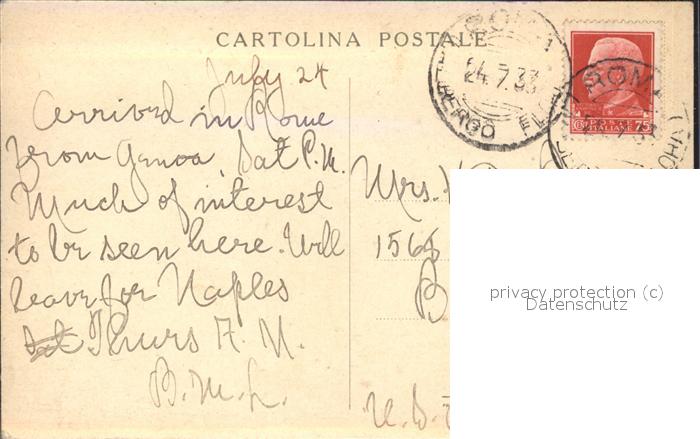 CARTOLINA POSTALE
July 24
Arrived in Rome
from Genoa, Sat P.M.
Much of interest
to be seen here. Will
leave for Naples
Thurs A.M.
B.M.L.
Mrs.
1565
B
U.S.
ROMA
24.7.33
ALBERGO
POSTE
ITALIANE
75
ROMA
privacy protection (c)
Datenschutz